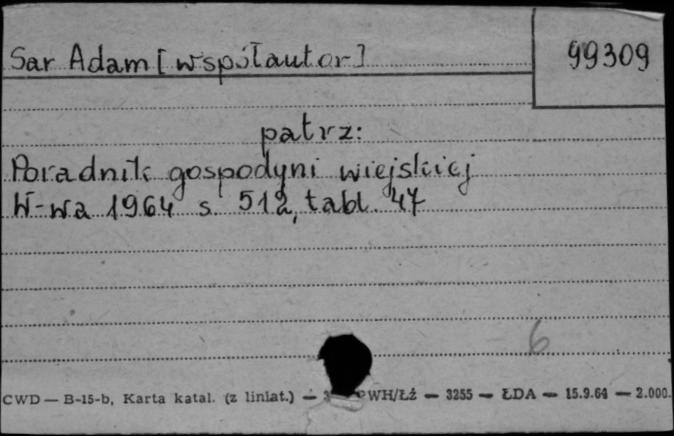 Sar Adam [współautor]
99309
patrz:
Poradnik gospodyni wiejskiej
W-wa 1964 s. 512, tabl. 47
6
CWD — B-15-b, Karta katal. (z liniat.) — WH/Łź — 3255 — ŁDA — 15.9.64 — 2.000.